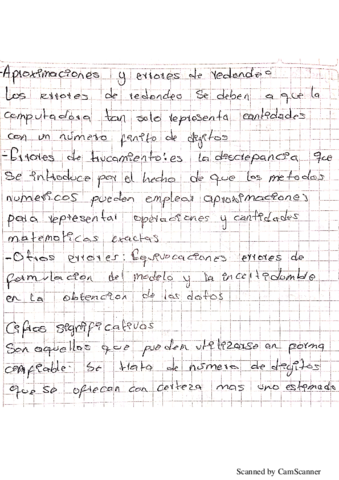 -Aproximaciones y errores de redondeo
Los errores de redondeo se deben a que la
computadora tan solo representa cantidades
con un número finito de dígitos
-Errores de trucamiento: es la discrepancia que
se introduce por el hecho de que los metodos
numericos pueden emplear aproximaciones
para representar operaciones y cantidades
matematicas exactas
-Otros errores: Equivocaciones errores de
formulacion del modelo y la incertidombre
en la obtencion de los datos
Cifras significativas
Son aquellos que pueden utilizarse en forma
confiable. Se trata de número de dígitos
que se ofrecen con certeza mas uno estimado
Scanned by CamScanner